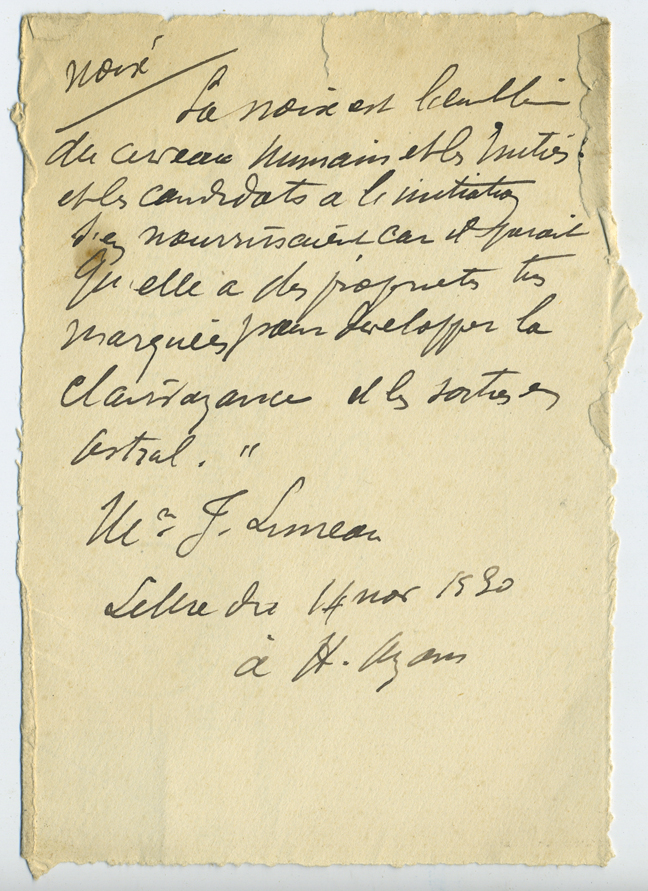 noix
La noix est l'emblème
du cerveau humain et les Initiés
et les candidats à l'initiation
s'en nourrissaient car il parait
qu'elle a des propriétés très
marquées pour développer la
clairvoyance et les sorties en
astral. "
Me J.
Lettre du 14 nov 1930
à H.